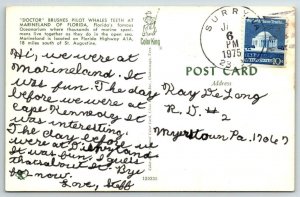 "DOCTOR" BRUSHES PILOT WHALES TEETH AT
MARINELAND OF FLORIDA. Florida's famous
Oceanarium where thousands of marine speci-
mens live together as they do in the open sea.
Marineland is located on Florida Highway A1A,
18 miles south of St. Augustine.
Hi, we were at
Marineland. It
was fun. The day
before we were at
Cape Kennedy it
was interesting.
The day before we
were at Disneyland
It was fun. I guess
thats about it. Bye
for now.
Love, Steff
121035
POST CARD
Address
SURRY
6
PM
1975
10¢
Ray DeLong
R.D. #2
Myerstown Pa. 17067